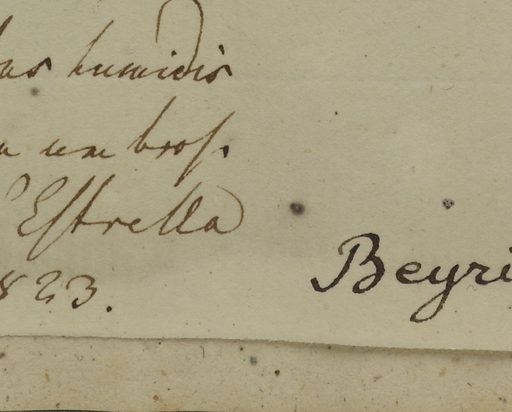 humidis
umbros.
Estrella
823.
Beyri